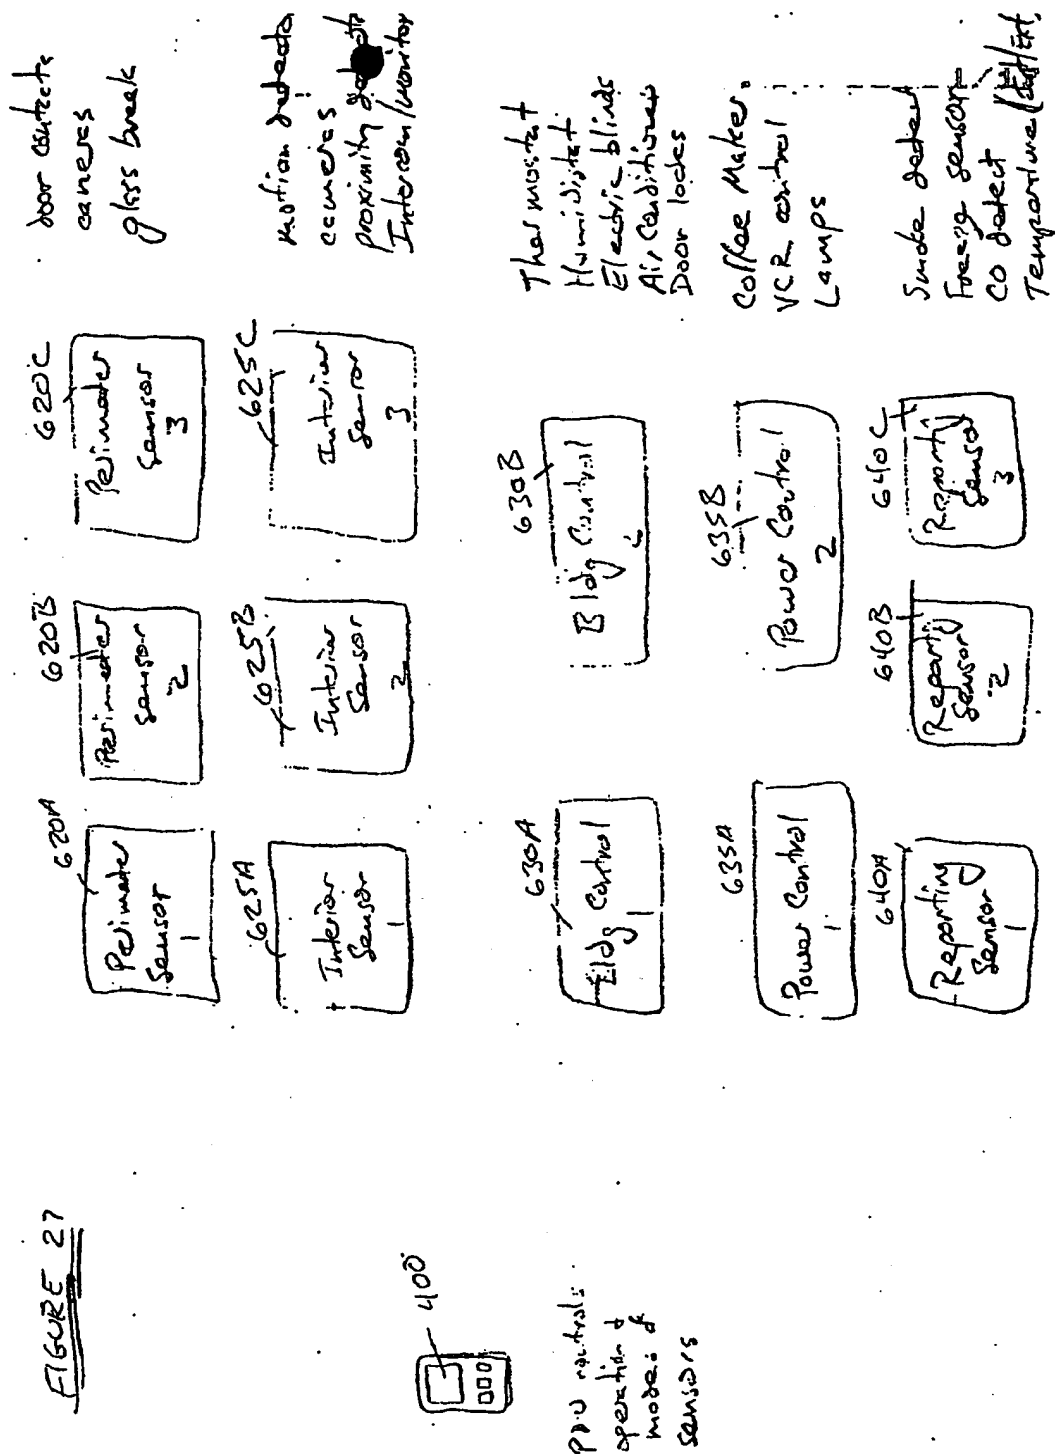 FIGURE 27
400
PDU controls
operation &
modes of
sensors
620A
Perimeter
Sensor
1
620B
Perimeter
Sensor
2
620C
Perimeter
Sensor
3
door contacts
cameras
glass break
625A
Interior
Sensor
1
625B
Interior
Sensor
2
625C
Interior
Sensor
3
motion detects
cameras
proximity
Intercom/monitor
630A
Bldg Control
1
630B
Bldg Control
2
Thermostat
Humidistat
Electric blinds
Air Conditioners
Door locks
635A
Power Control
1
635B
Power Control
2
Coffee Maker
VCR control
Lamps
640A
Reporting
Sensor
1
640B
Reporting
Sensor
2
640C
Reporting
Sensor
3
Smoke detect
Freeze sensor
CO detect
Temperature Int/Ext.